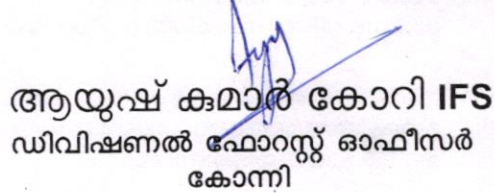 ആയുഷ് കുമാർ കോറി IFS
ഡിവിഷണൽ ഫോറസ്റ്റ് ഓഫീസർ
കോന്നി